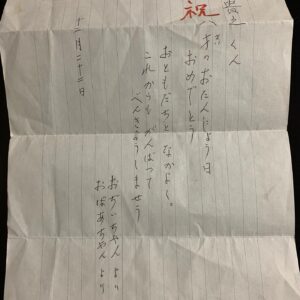 貴之くん
祝
八才のおたんじょう日
おめでとう
おともだちと なかよく。
これからも がんばって
べんきょうしませう
おぢいちゃん より
おばあちゃん より
十二月二十二日